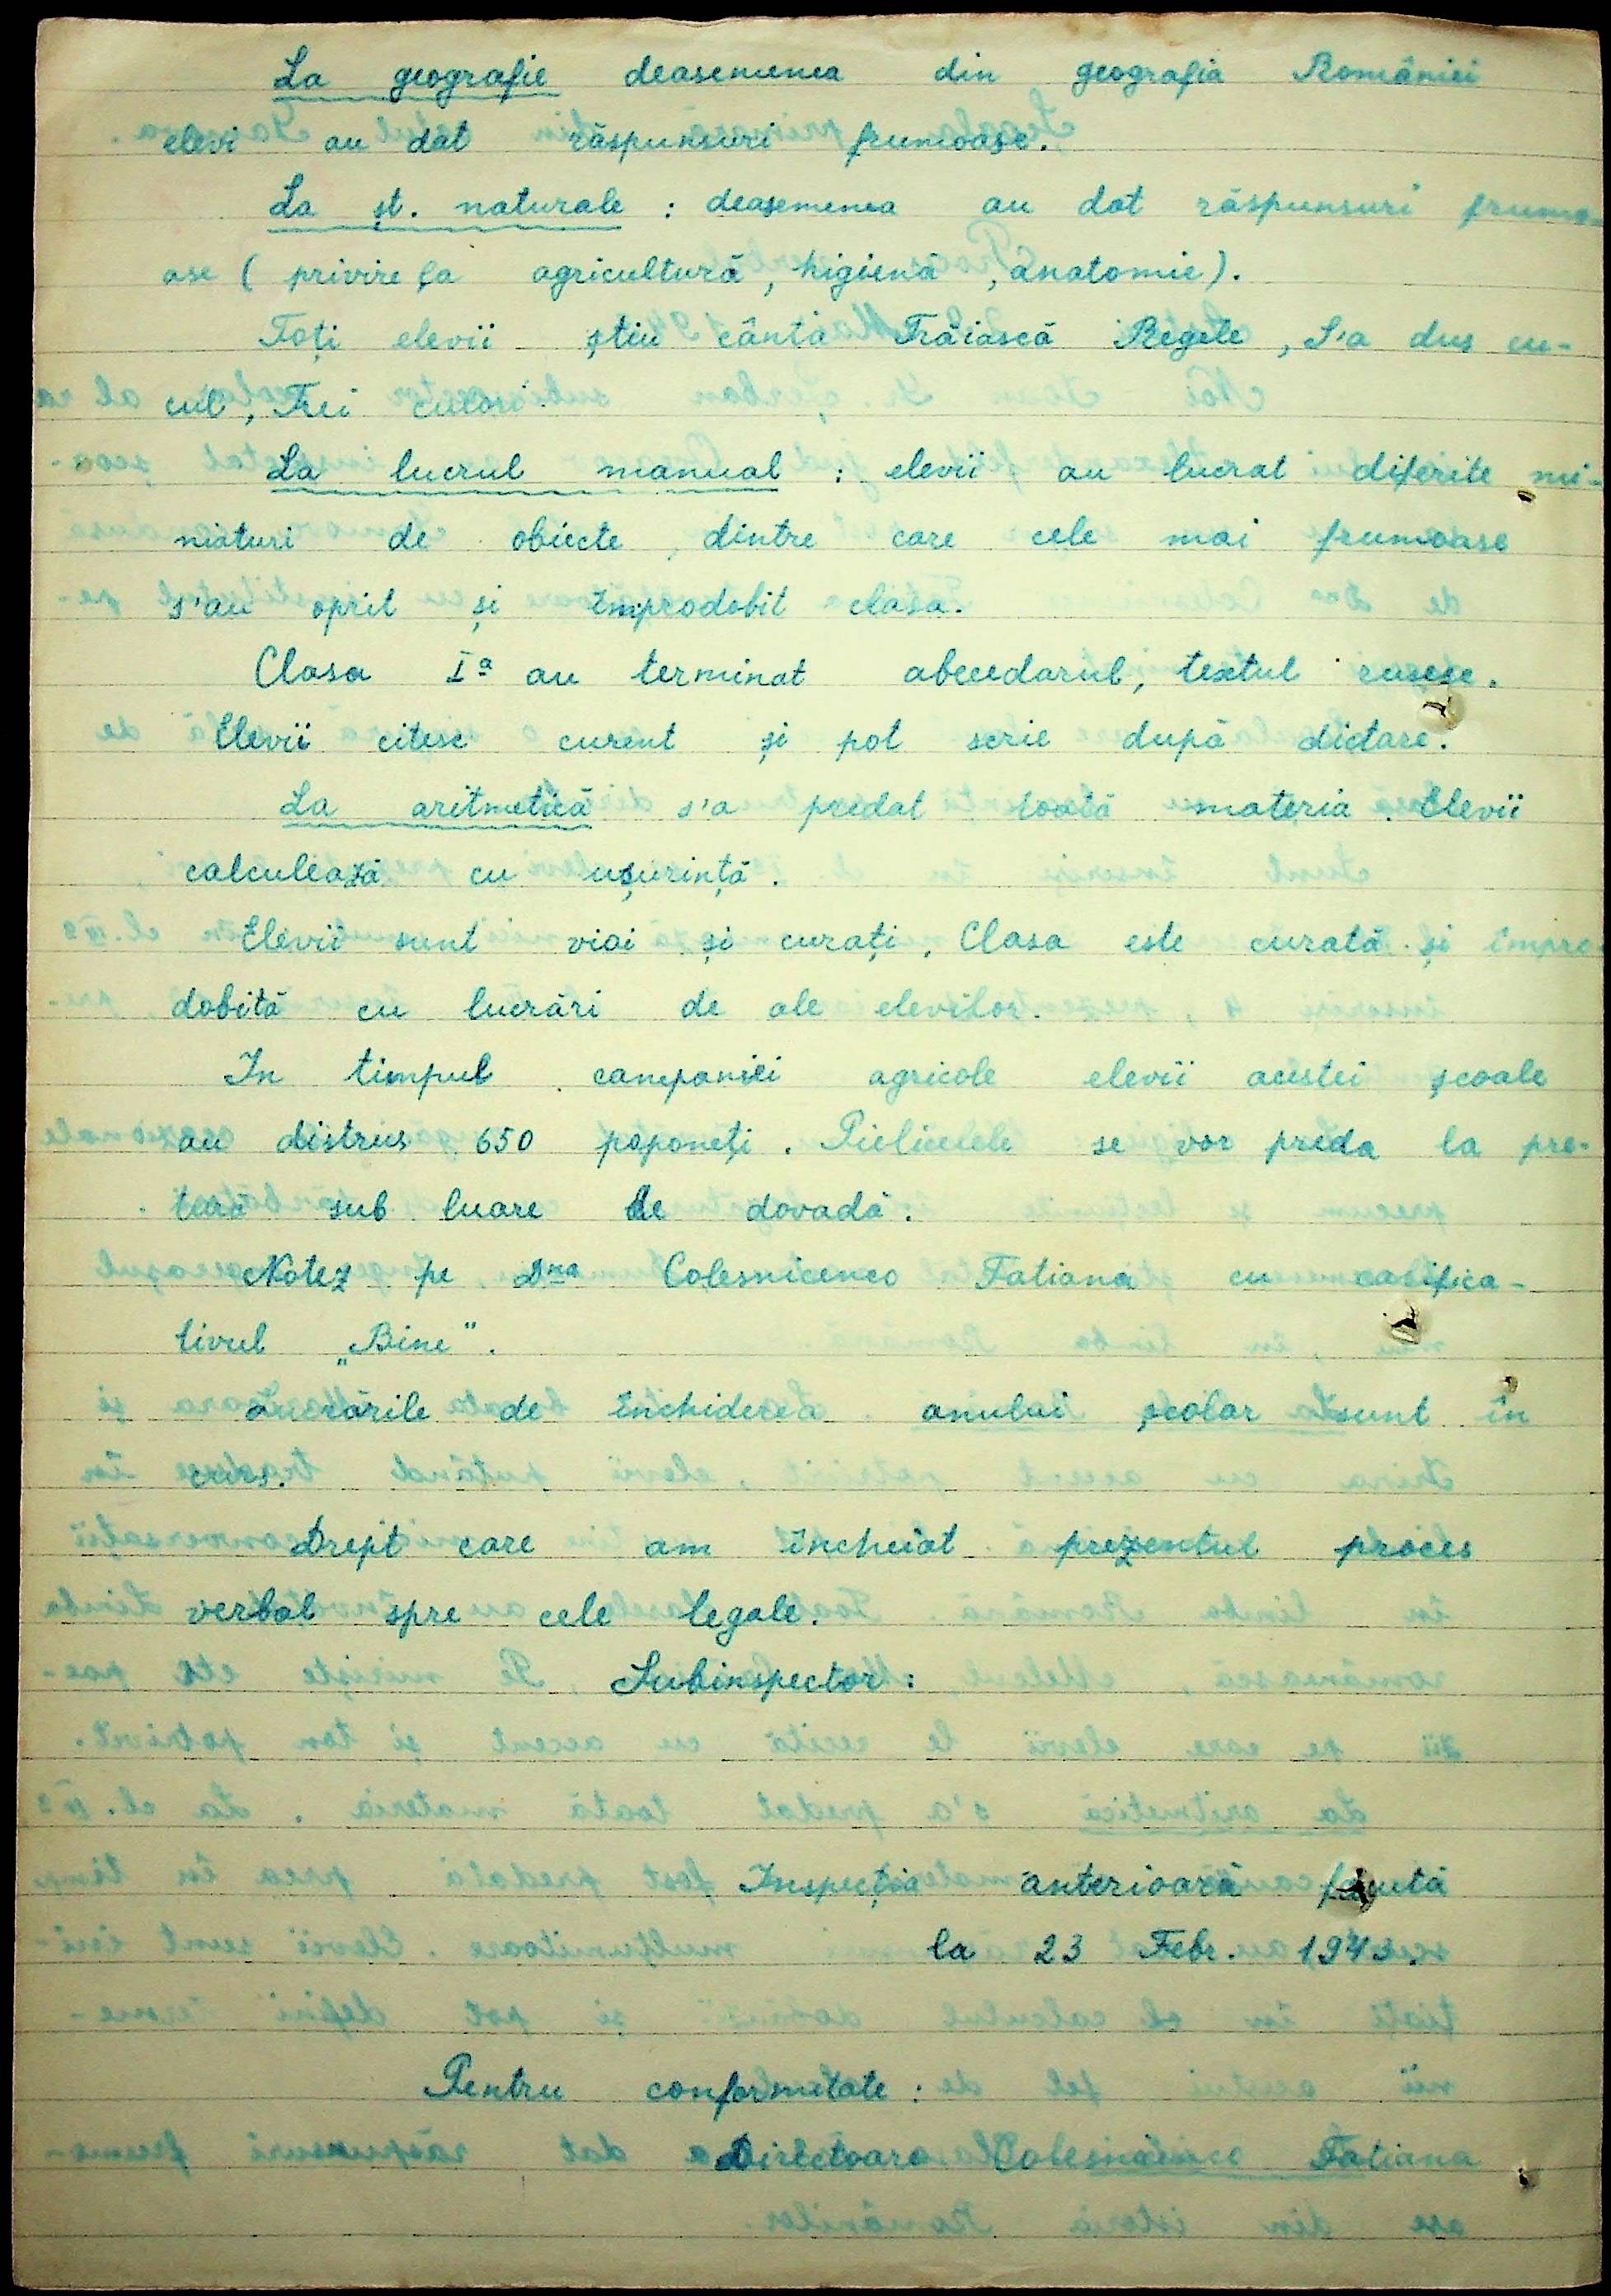 La geografie deasemenea din geografia României
elevi au dat răspunsuri frumoase.
La șt. naturale : deasemenea au dat răspunsuri frumo-
ase ( privire la agricultură, higienă, anatomie).
Toți elevii știu cânta Trăiască Regele, S'a dus cu-
cul, Trei culori.
La lucrul manual : elevii au lucrat diferite mi-
niaturi de obiecte, dintre care cele mai frumoase
s'au oprit și împrodobit clasa.
Clasa Iª au terminat abecedarul, textul rusesc.
Elevii citesc curent și pot scrie după dictare.
La aritmetică s'a predat toată materia. Elevii
calculează cu ușurință.
Elevii sunt vioi și curați, Clasa este curată și împro-
dobită cu lucrări de ale elevilor.
In timpul campaniei agricole elevii acestei școale
au distrus 650 poponeți. Pielicelele se vor preda la pre-
tură sub luare de dovadă.
Notez pe Dna Colesnicenco Tatiana cu califica-
tivul „Bine".
Lucrările de închiderea anului școlar sunt în
curs.
Drept care am încheiat prezentul proces
verbal spre cele legale.
Subinspector:
Inspecția anterioară făcută
la 23 Febr. 1943.
Pentru conformitate :
Directoare Colesnicenco Tatiana